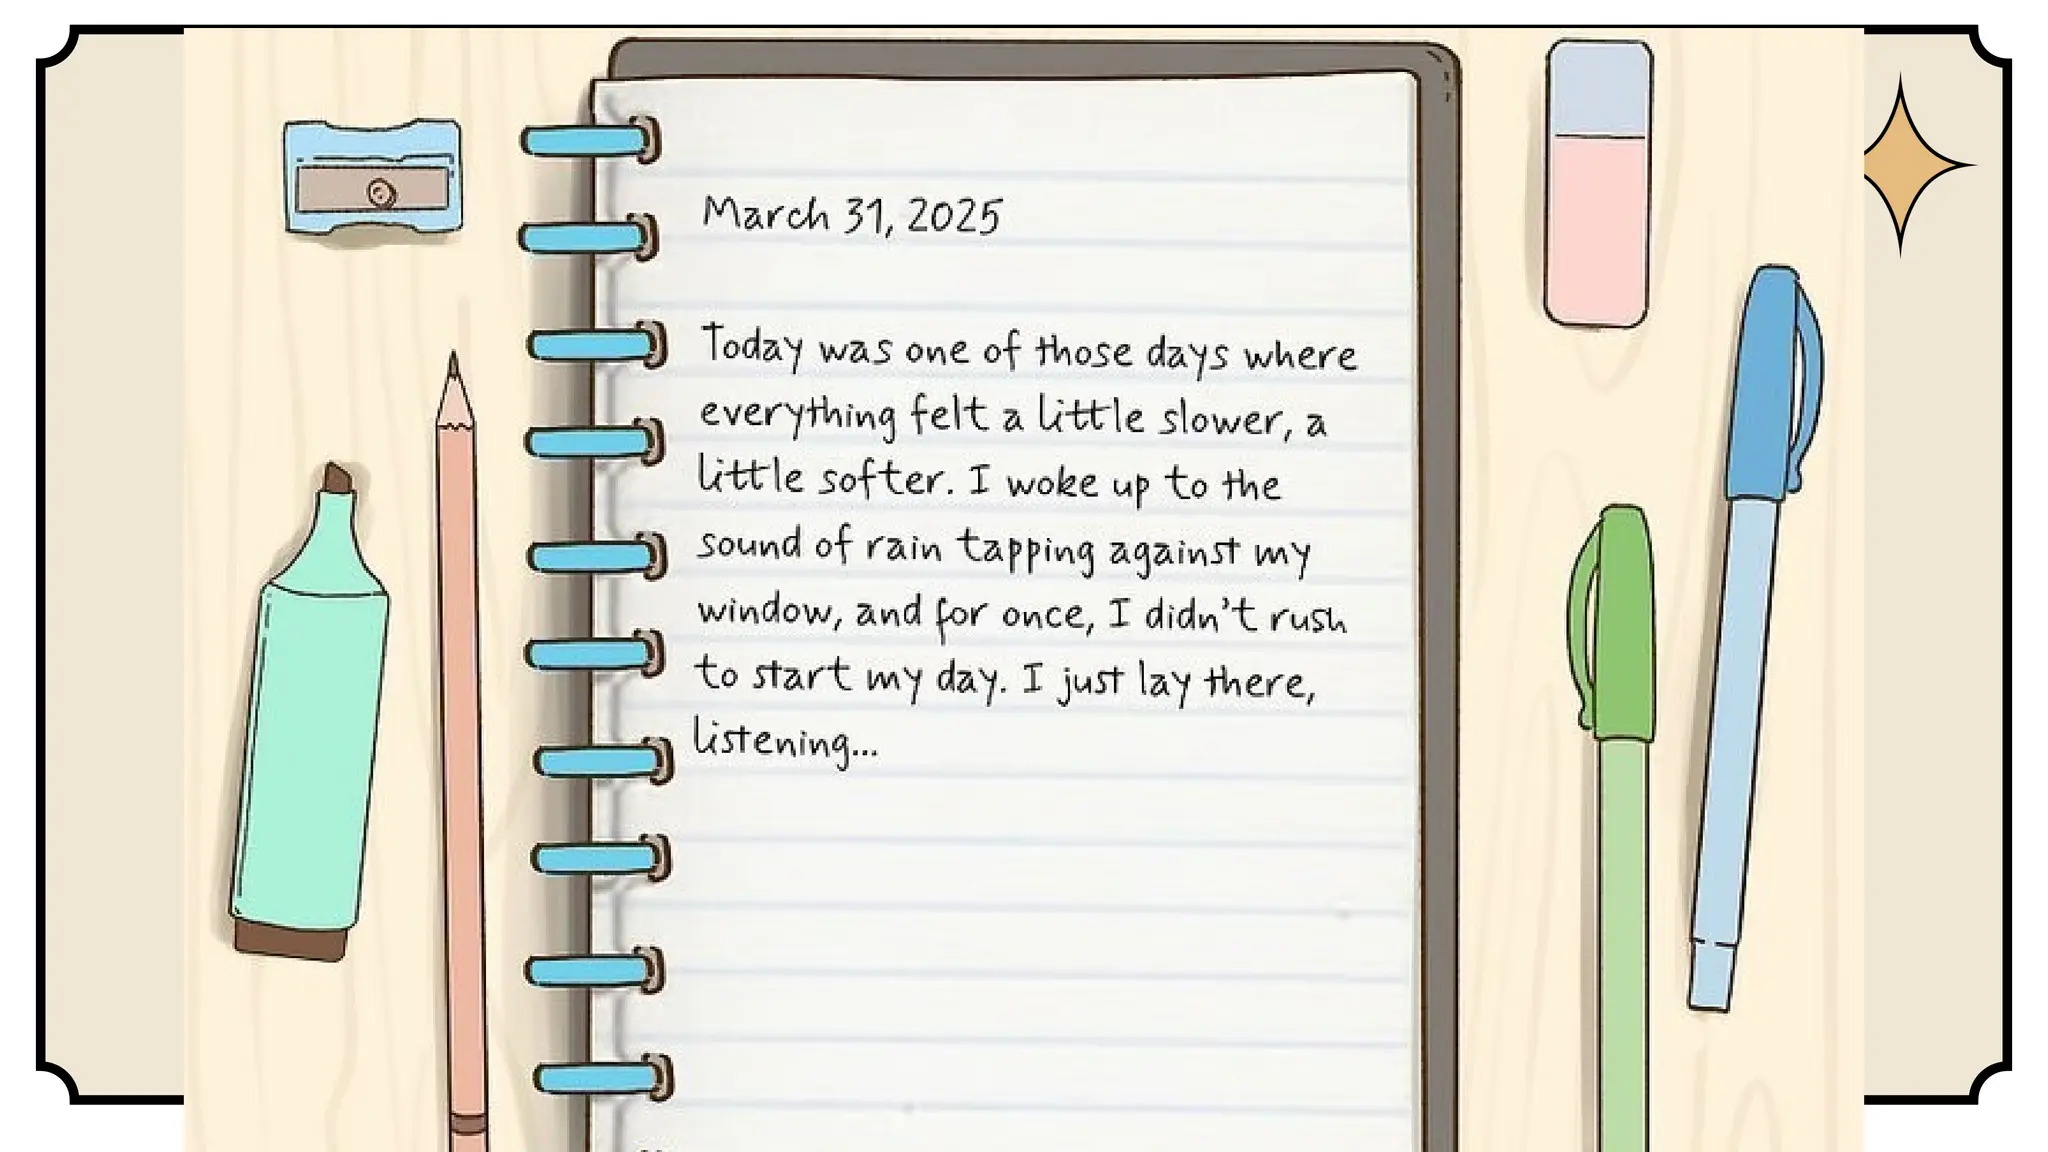 March 31, 2025
Today was one of those days where
everything felt a little slower, a
little softer. I woke up to the
sound of rain tapping against my
window, and for once, I didn't rush
to start my day. I just lay there,
listening...